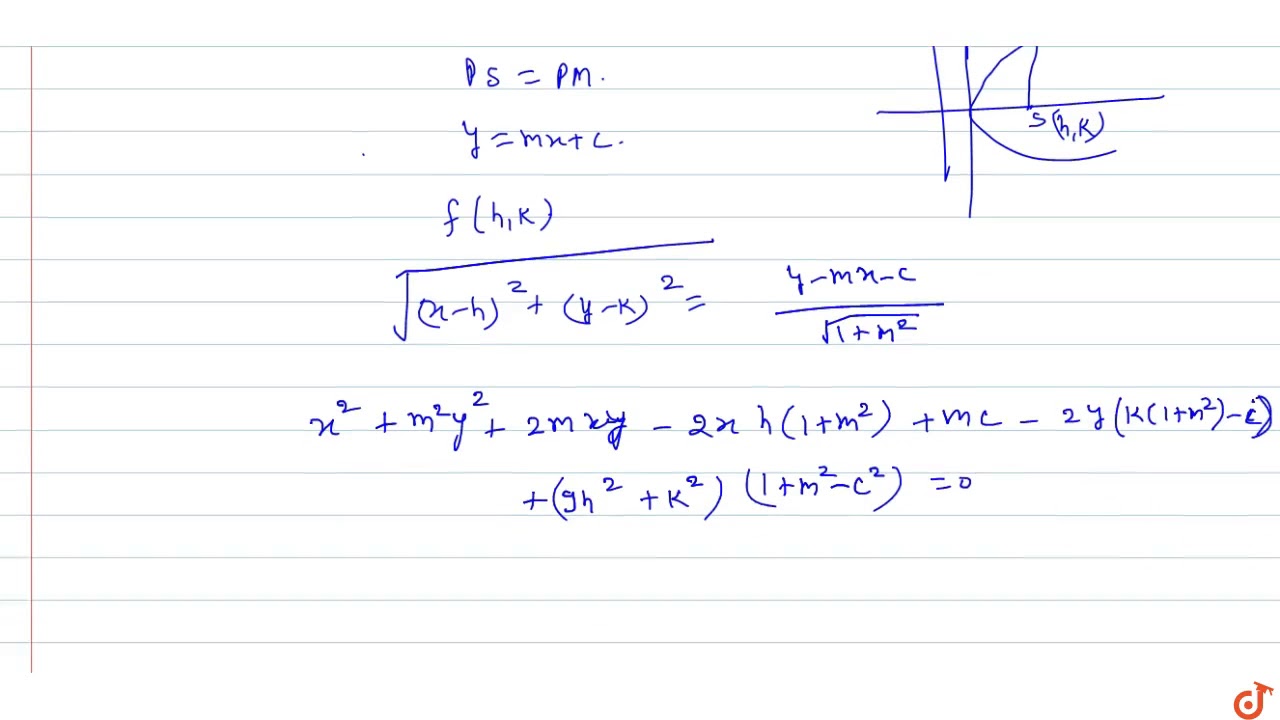 PS = PM.
y = mx + c.
S(h,K)
f(h,K)
√((x-h)² + (y-K)²) = (y-mx-c)/√(1+m²)
x² + m²y² + 2mxy - 2x h(1+m²) + mc - 2y(K(1+m²)-c)
+(gh² + K²) (1+m²-c²) = 0